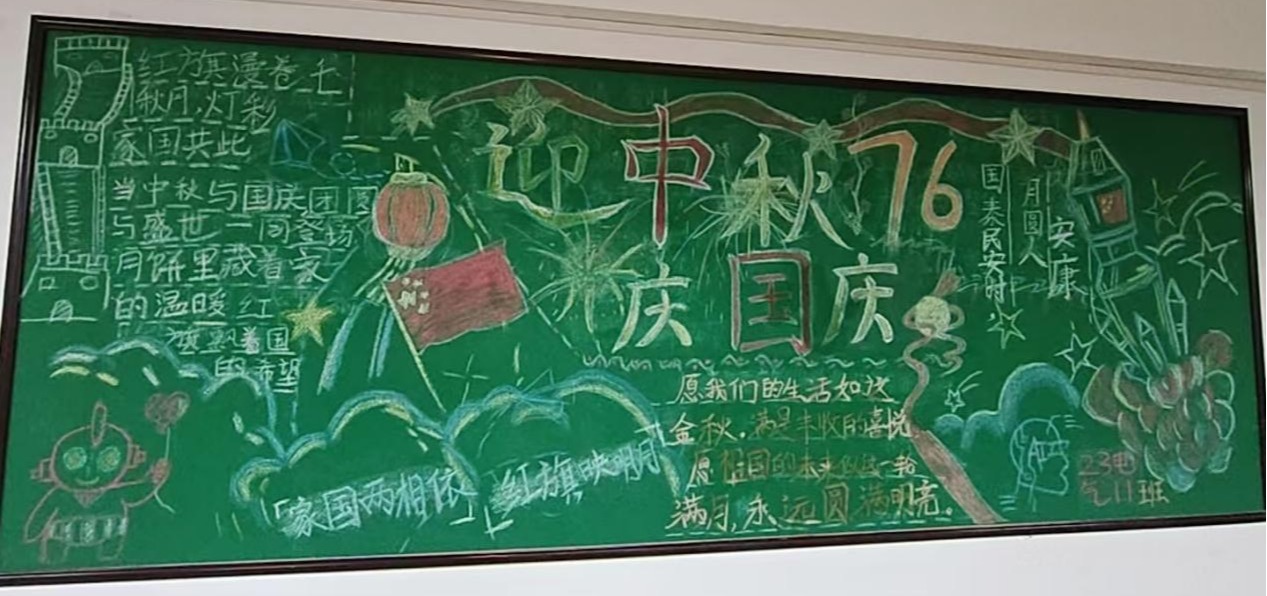 红旗漫卷七
秋月,灯彩
家国共此
当中秋与国庆团圆
与盛世一同登场
月饼里藏着家
的温暖红
旗飘着国
的希望
迎中秋76
庆国庆
国泰民安时,
月圆人
安康
愿我们的生活如这
金秋,满是丰收的喜悦
愿祖国的未来似这一轮
满月,永远圆满明亮。
「家国两相依
红旗映明月」
AI
23电
气11班